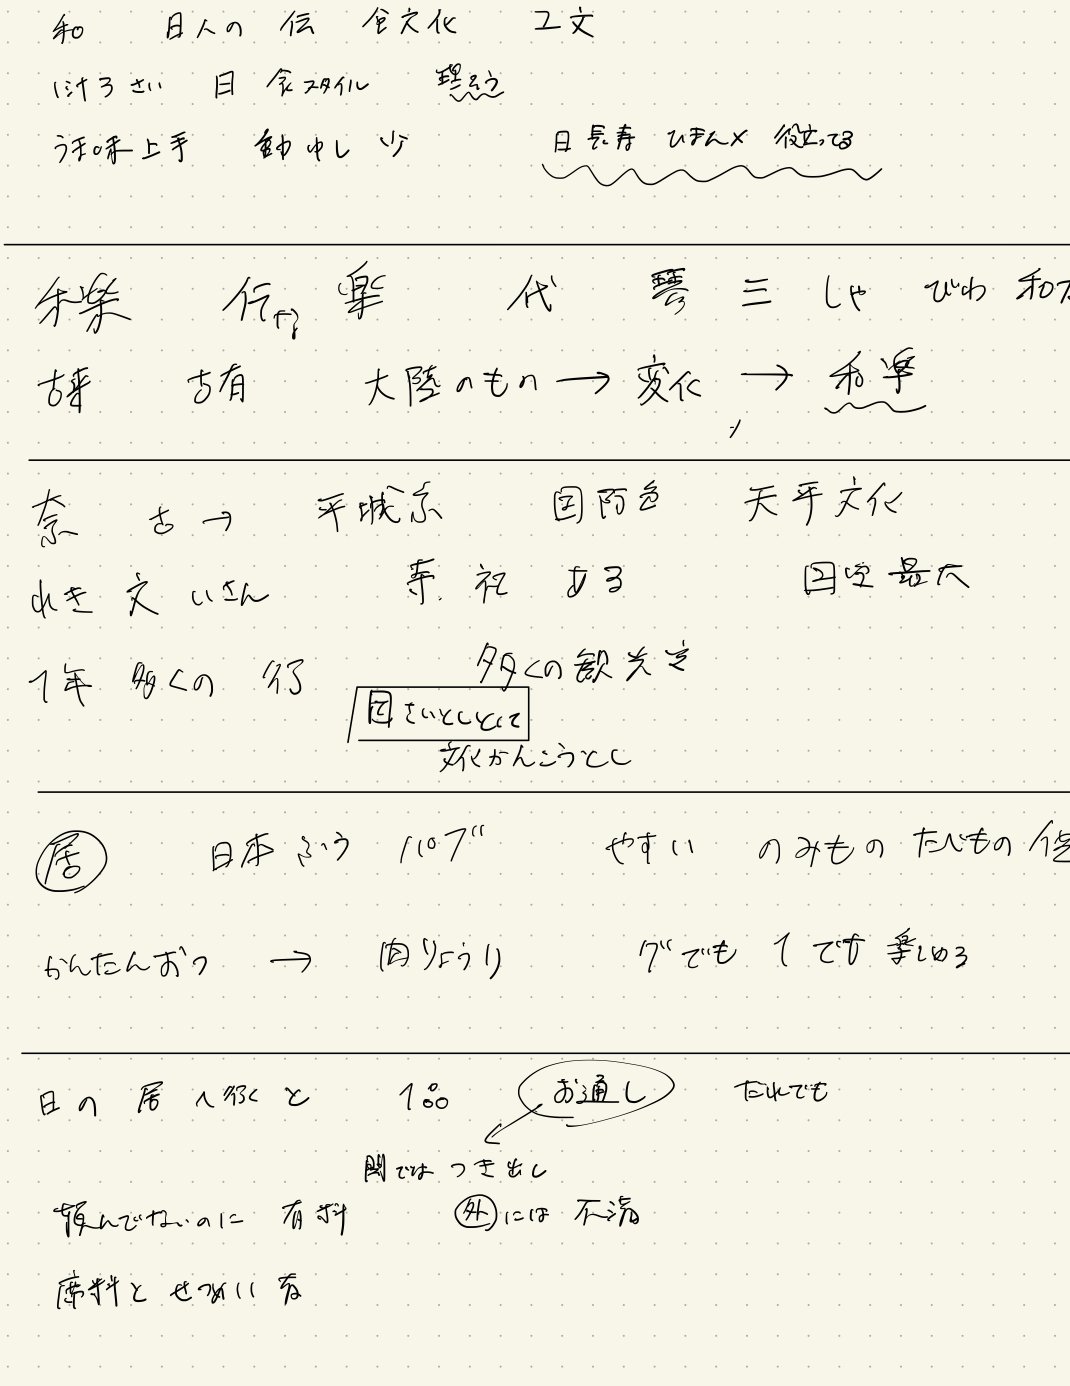 和 日人の 伝 食文化 ユ文
1汁3さい 日 食スタイル 理そう
うま味上手 動ゆし 少 日長寿 ひまん× 役立ってる
和楽 伝 楽 代 琴 三 しゃ びわ 和太
古来 古有 大陸のもの → 変化 → 和楽
奈 古→ 平城京 国際色 天平文化
れき 文 いさん 寺.社 ある 国宝最大
1年 多くの 行 多くの観光
国さいとしとして
文化かんこうとし
居 日本ふう パブ やすい のみもの たべもの
かんたんおつ → 肉りょうり グでも 1でも 楽しめる
日の 居へ行くと 1品 お通し だれでも
関では つき出し
頼んでないのに 有料 外には 不満
席料と せつめい 有